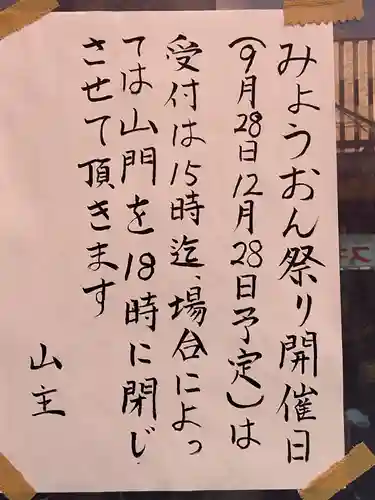 みようおん祭り開催日
(9月28日12月28日予定)は
受付は15時迄、場合によっ
ては山門を18時に閉じ
させて頂きます
山主